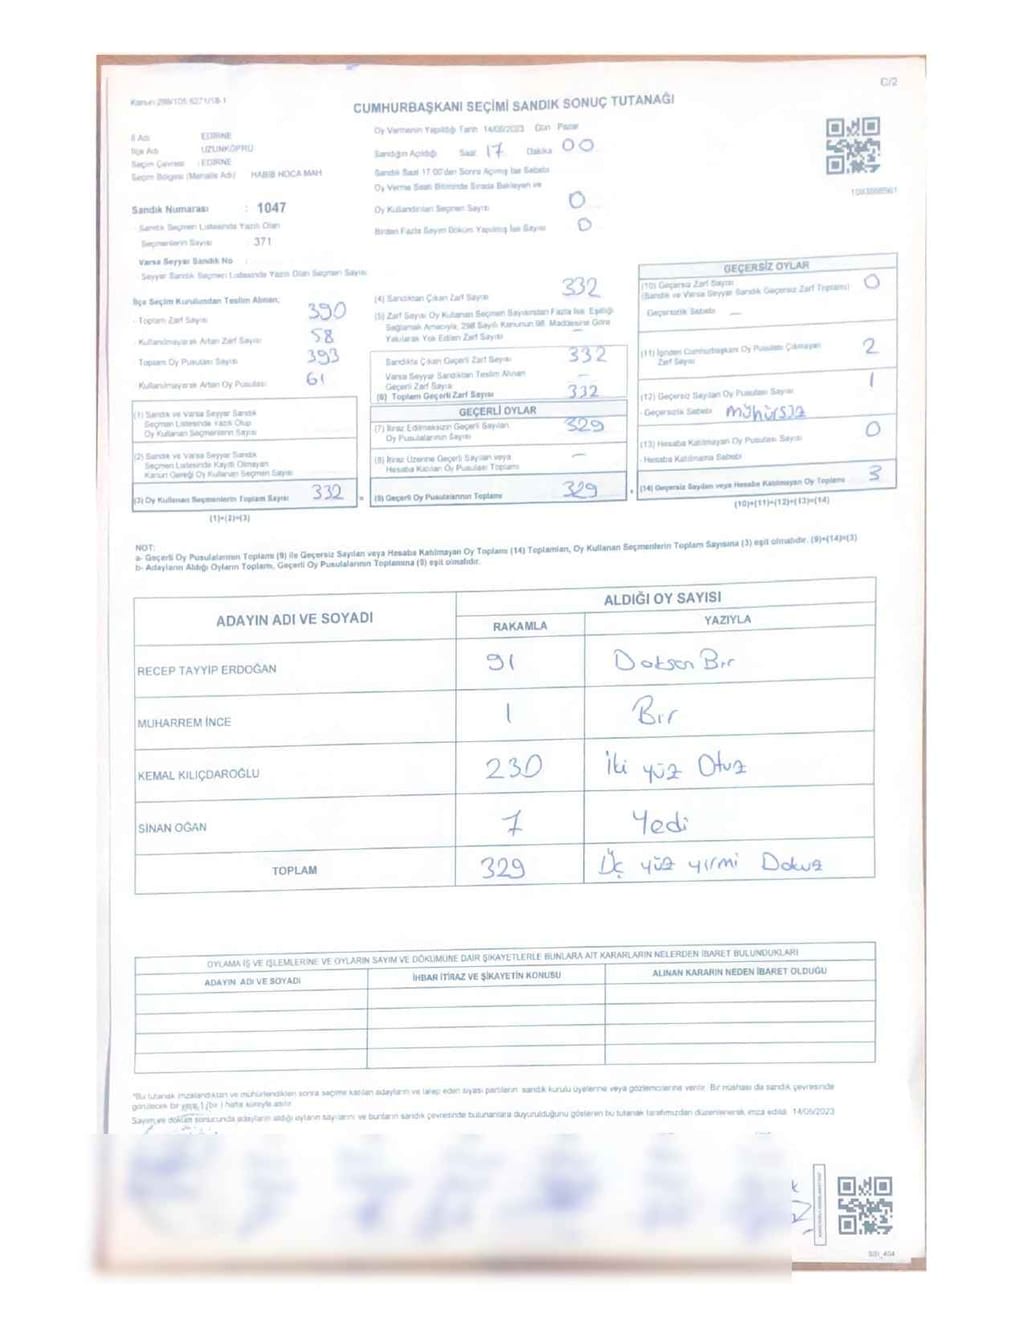 C/2
Kanun 298/105 6271/18-1
CUMHURBAŞKANI SEÇİMİ SANDIK SONUÇ TUTANAĞI
İl Adı EDİRNE
İlçe Adı UZUNKÖPRÜ
Seçim Çevresi : EDİRNE
Seçim Bölgesi (Mahalle Adı) HABİB HOCA MAH
Sandık Numarası : 1047
Sandık Seçmen Listesinde Yazılı Olan
Seçmenlerin Sayısı 371
Varsa Seyyar Sandık No
Seyyar Sandık Seçmen Listesinde Yazılı Olan Seçmen Sayısı
Oy Vermenin Yapıldığı Tarih 14/05/2023 Gün Pazar
Sandığın Açıldığı Saat 17 Dakika 00
Sandık Saat 17.00'den Sonra Açılmış İse Sebebi
Oy Verme Saati Bitiminde Sırada Bekleyen ve
Oy Kullandırılan Seçmen Sayısı 0
Birden Fazla Sayım Döküm Yapılmış İse Sayısı 0
İlçe Seçim Kurulundan Teslim Alınan;
- Toplam Zarf Sayısı 390
- Kullanılmayarak Artan Zarf Sayısı 58
Toplam Oy Pusulası Sayısı 393
Kullanılmayarak Artan Oy Pusulası 61
(1) Sandık ve Varsa Seyyar Sandık
Seçmen Listesinde Yazılı Olup
Oy Kullanan Seçmenlerin Sayısı
(2) Sandık ve Varsa Seyyar Sandık
Seçmen Listesinde Kayıtlı Olmayan
Kanun Gereği Oy Kullanan Seçmen Sayısı
(3) Oy Kullanan Seçmenlerin Toplam Sayısı 332
(1)+(2)=(3)
(4) Sandıktan Çıkan Zarf Sayısı 332
(5) Zarf Sayısı Oy Kullanan Seçmen Sayısından Fazla İse, Eşitliği
Sağlamak Amacıyla, 298 Sayılı Kanunun 98. Maddesine Göre
Yakılarak Yok Edilen Zarf Sayısı
Sandıkta Çıkan Geçerli Zarf Sayısı 332
Varsa Seyyar Sandıktan Teslim Alınan
Geçerli Zarf Sayısı –
(6) Toplam Geçerli Zarf Sayısı 332
GEÇERLİ OYLAR
(7) İtiraz Edilmeksizin Geçerli Sayılan
Oy Pusulalarının Sayısı 329
(8) İtiraz Üzerine Geçerli Sayılan veya
Hesaba Katılan Oy Pusulası Toplamı –
(9) Geçerli Oy Pusulalarının Toplamı 329
GEÇERSİZ OYLAR
(10) Geçersiz Zarf Sayısı 0
(Sandık ve Varsa Seyyar Sandık Geçersiz Zarf Toplamı)
Geçersizlik Sebebi –
(11) İçinden Cumhurbaşkanı Oy Pusulası Çıkmayan
Zarf Sayısı 2
(12) Geçersiz Sayılan Oy Pusulası Sayısı 1
- Geçersizlik Sebebi mühürsüz
(13) Hesaba Katılmayan Oy Pusulası Sayısı 0
- Hesaba Katılmama Sebebi
(14) Geçersiz Sayılan veya Hesaba Katılmayan Oy Toplamı 3
(10)+(11)+(12)+(13)=(14)
NOT:
a- Geçerli Oy Pusulalarının Toplamı (9) ile Geçersiz Sayılan veya Hesaba Katılmayan Oy Toplamı (14) Toplamları, Oy Kullanan Seçmenlerin Toplam Sayısına (3) eşit olmalıdır. (9)+(14)=(3)
b- Adayların Aldığı Oyların Toplamı, Geçerli Oy Pusulalarının Toplamına (9) eşit olmalıdır.
ADAYIN ADI VE SOYADI
ALDIĞI OY SAYISI
RAKAMLA YAZIYLA
RECEP TAYYİP ERDOĞAN 91 Doksan Bir
MUHARREM İNCE 1 Bir
KEMAL KILIÇDAROĞLU 230 İki yüz Otuz
SİNAN OĞAN 7 Yedi
TOPLAM 329 Üç yüz yirmi Dokuz
OYLAMA İŞ VE İŞLEMLERİNE VE OYLARIN SAYIM VE DÖKÜMÜNE DAİR ŞİKAYETLERLE BUNLARA AİT KARARLARIN NELERDEN İBARET BULUNDUKLARI
ADAYIN ADI VE SOYADI İHBAR İTİRAZ VE ŞİKAYETİN KONUSU ALINAN KARARIN NEDEN İBARET OLDUĞU
*Bu tutanak imzalandıktan ve mühürlendikten sonra seçime katılan adayların ve talep eden siyasi partilerin sandık kurulu üyelerine veya gözlemcilerine verilir. Bir nüshası da sandık çevresinde
görülecek bir yere 1 (bir) hafta süreyle asılır
Sayım ve döküm sonucunda adayların aldığı oyların sayılarını ve bunların sandık çevresinde bulunanlara duyurulduğunu gösteren bu tutanak tarafımızdan düzenlenerek imza edildi. 14/05/2023